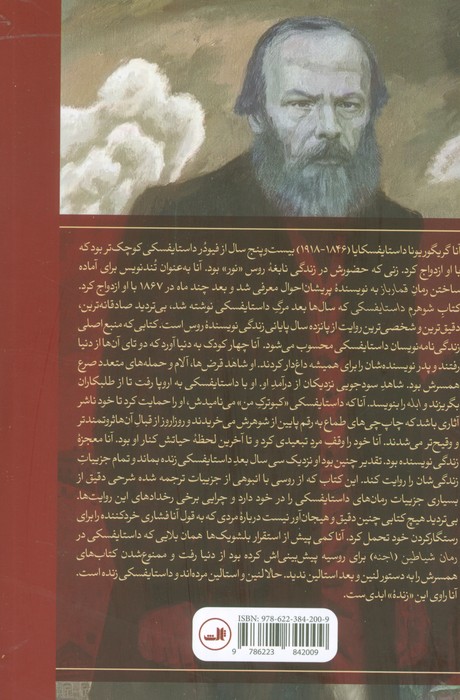 آنا گریگوریونا داستایفسکایا (۱۸۴۶-۱۹۱۸) بیست‌وپنج سال از فیودُر داستایفسکی کوچک‌تر بود که
با او ازدواج کرد. زنی که حضورش در زندگی نابغهٔ روس «نور» بود. آنا به‌عنوان تُندنویس برای آماده
ساختن رمان قمارباز به نویسندهٔ پریشان‌احوال معرفی شد و بعد چند ماه در ۱۸۶۷ با او ازدواج کرد.
کتاب شوهرم داستایفسکی که سال‌ها بعد مرگِ داستایفسکی نوشته شد، بی‌تردید صادقانه‌ترین،
دقیق‌ترین و شخصی‌ترین روایت از پانزده سال پایانی زندگی نویسندهٔ روس است. کتابی که منبع اصلی
زندگی‌نامه‌نویسان داستایفسکی محسوب می‌شود. آنا چهار کودک به دنیا آورد که دو تای آن‌ها از دنیا
رفتند و پدر نویسنده‌شان را برای همیشه داغدار کردند. او شاهد قرض‌ها، آلام و حمله‌های متعدد صرع
همسرش بود. شاهدِ سودجویی نزدیکان از درآمدِ او. او با داستایفسکی به اروپا رفت تا از طلبکاران
بگریزند و ابله را بنویسد. آنا که داستایفسکی «کبوترکِ من» می‌نامیدش، او را حمایت کرد تا خود ناشر
آثاری باشد که چاپ‌چی‌های طماع به رقم پایین از شوهرش می‌خریدند و روزبه‌روز از قِبال آن‌ها ثروتمندتر
و وقیح‌تر می‌شدند. آنا خود را وقفِ مردِ تبعیدی کرد و تا آخرین لحظهٔ حیاتش کنار او بود. آنا معجزهٔ
زندگی نویسنده بود. تقدیر چنین بود او نزدیک سی سال بعدِ داستایفسکی زنده بماند و تمام جزییاتِ
زندگی‌شان را روایت کند. این کتاب که از روسی با انبوهی از جزییات ترجمه شده شرحی دقیق از
بسیاری جزییات رمان‌های داستایفسکی را در خود دارد و چرایی برخی رخدادهای این روایت‌ها.
بی‌تردید هیچ کتابی چنین دقیق و هیجان‌آور نیست دربارهٔ مردی که به قول آنا فشاری خردکننده را برای
رستگارکردن خود تحمل کرد. آنا کمی پیش از استقرار بلشویک‌ها همان بلایی که داستایفسکی در
رمان شیاطین (اجنه) برای روسیه پیش‌بینی‌اش کرده بود از دنیا رفت و ممنوع‌شدن کتاب‌های
همسرش را به دستور لنین و بعد استالین ندید. حالا لنین و استالین مرده‌اند و داستایفسکی زنده است.
آنا راوی این «زندهٔ» ابدی‌ست.
ISBN: 978-622-384-200-9
9 786223 842009
ثالث